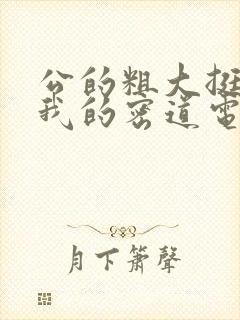 公的粗大挺
我的密道電
月下簫聲